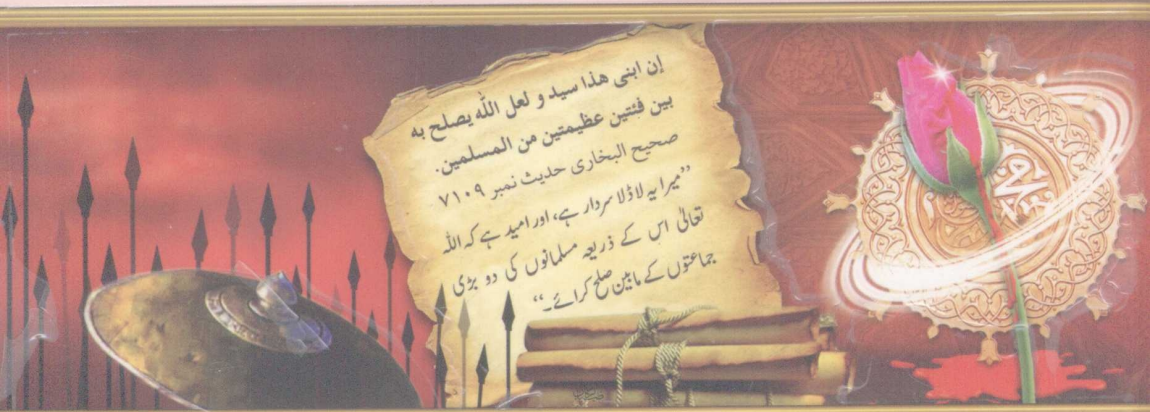 إن ابنى هذا سيد و لعل الله يصلح به
بين فئتين عظيمتين من المسلمين.
صحيح البخارى حديث نمبر ٧١٠٩
”میرا یہ لاڈلا سردار ہے، اور امید ہے کہ اللہ
تعالیٰ اس کے ذریعہ مسلمانوں کی دو بڑی
جماعتوں کے مابین صلح کرائے۔“